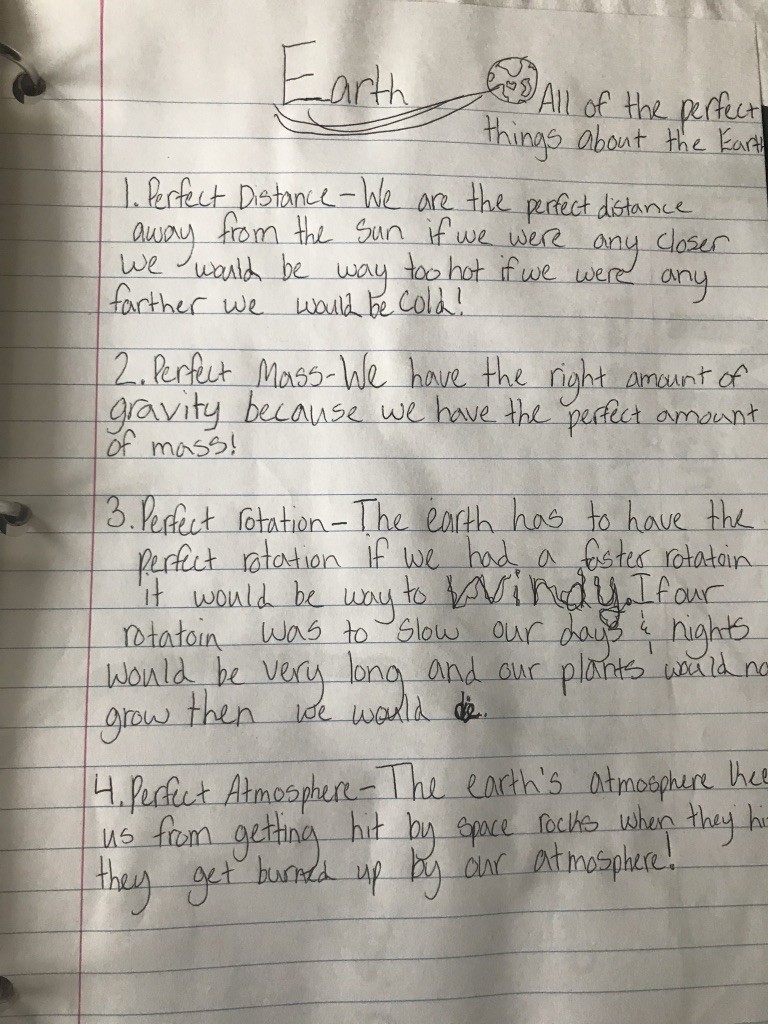 Earth
All of the perfect
things about the Earth
1. Perfect Distance - We are the perfect distance
away from the sun if we were any closer
we would be way too hot if we were any
farther we would be cold!
2. Perfect Mass - We have the right amount of
gravity because we have the perfect amount
of mass!
3. Perfect rotation - The earth has to have the
perfect rotation if we had a faster rotatoin
it would be way to windy. If our
rotatoin was to slow our days & nights
would be very long and our plants would no
grow then we would die.
4. Perfect Atmosphere - The earth's atmosphere
us from getting hit by space rocks when they hi
they get burned up by our atmosphere!